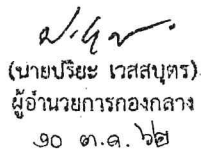 (นายปริยะ เวสสบุตร)
ผู้อำนวยการกองกลาง
๑๐ ต.ค. ๖๒